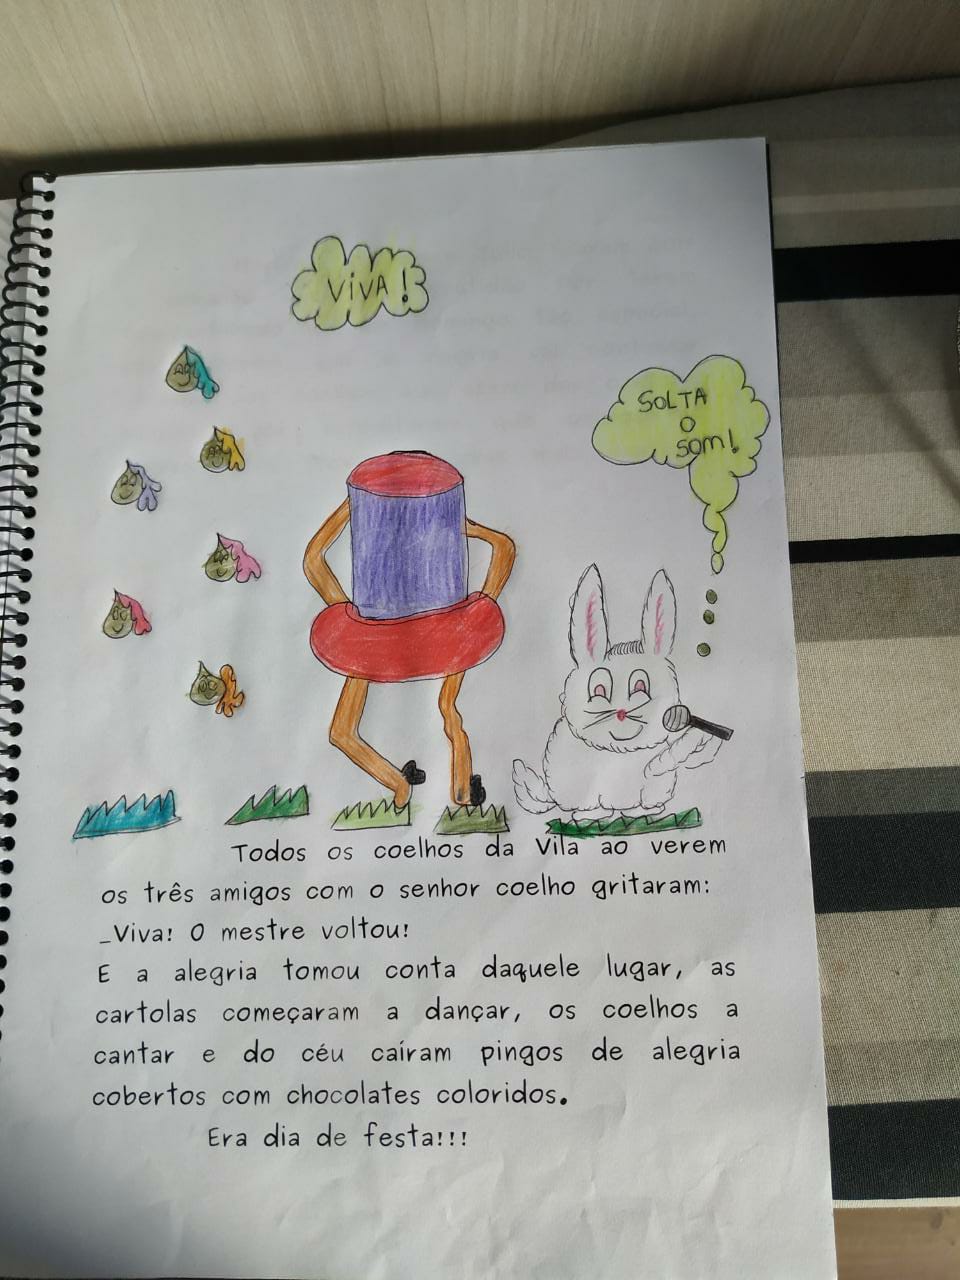 VIVA!
SOLTA
O
SOM!
Todos os coelhos da Vila ao verem
os três amigos com o senhor coelho gritaram:
_Viva! O mestre voltou!
E a alegria tomou conta daquele lugar, as
cartolas começaram a dançar, os coelhos a
cantar e do céu caíram pingos de alegria
cobertos com chocolates coloridos.
Era dia de festa!!!